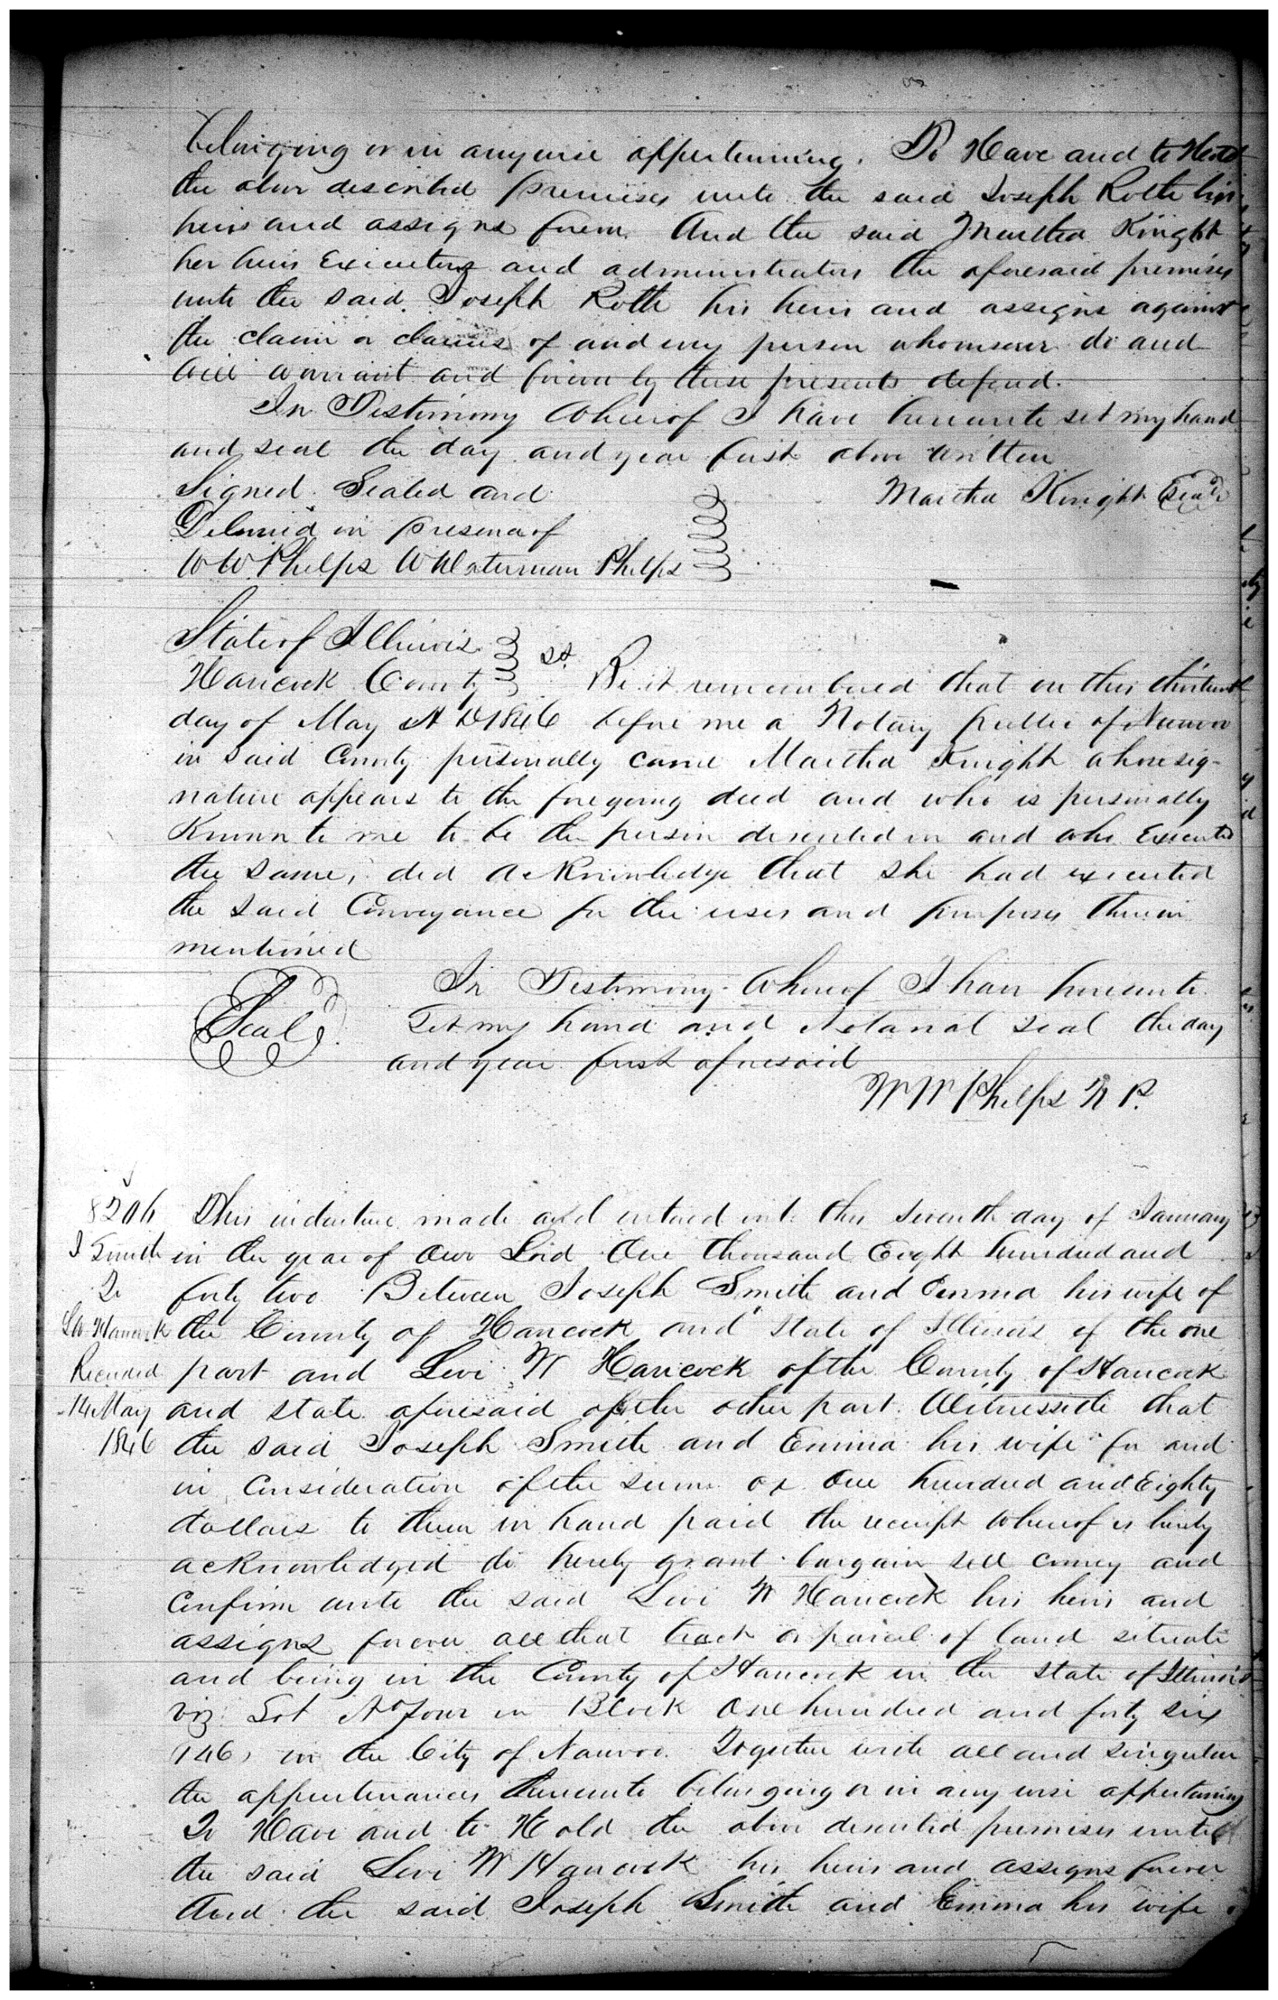 belonging or in anywise appertaining. To Have and to Hold
the above described premises unto the said Joseph Rolle his
heirs and assigns forever. And the said Martha Knight
her heirs Executors and administrators the aforesaid premises
unto the said Joseph Rolle his heirs and assigns against
the claim or claims of and every person whomsoever do and
will warrant and forever by these presents defend.
In Testimony Whereof I have hereunto set my hand
and seal the day and year first above written
Signed Sealed and
Martha Knight Seal
Delivered in presence of
W W Phelps W Waterman Phelps
State of Illinois
Hancock County ss. Be it remembered that on this thirteenth
day of May A D 1846 before me a Notary public of Nauvoo
in said County personally came Martha Knight whose sig-
nature appears to the foregoing deed and who is personally
Known to me to be the person described in and who Executed
the same, did acknowledge that she had executed
the said Conveyance for the uses and purposes therein
mentioned
In Testimony Whereof I have hereunto
Seal
set my hand and Notarial seal the day
and year first aforesaid
W W Phelps N P.
8206
J Smith
To
L W Hancock
Recorded
14 May
1846
This indenture made and entered into this seventh day of January
in the year of Our Lord One thousand Eight hundred and
forty two Between Joseph Smith and Emma his wife of
the County of Hancock and State of Illinois of the one
part and Levi W Hancock of the County of Hancock
and state aforesaid of the other part. Witnesseth that
the said Joseph Smith and Emma his wife for and
in Consideration of the sum of One hundred and Eighty
dollars to them in hand paid the receipt whereof is hereby
acknowledged do hereby grant bargain sell convey and
Confirm unto the said Levi W Hancock his heirs and
assigns forever all that tract or parcel of land situate
and being in the County of Hancock in the State of Illinois
viz: Lot No four in Block One hundred and forty six
(146) in the City of Nauvoo. Together with all and singular
the appurtenances thereunto belonging or in any wise appertaining
To Have and to Hold the above described premises unto
the said Levi W Hancock his heirs and assigns forever
And the said Joseph Smith and Emma his wife